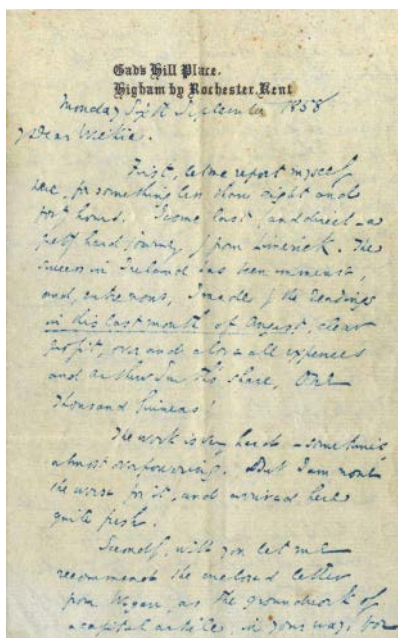 Gad's Hill Place.
Higham by Rochester, Kent
Monday Sixth September 1858
My Dear Wills.
First, let me report myself
here, for something less than eight and
forty hours. I come last (and direct – a
pretty hard journey) from Limerick. The
success in Ireland has been immense,
and, entre nous, I made of the Readings
in this last month of August, clear
profit, over and above all expenses
and Arthur Smith's share, One
Thousand Guineas!
The work is very hard – sometimes
almost overpowering. But I am none
the worse for it, and arrived here
quite fresh.
Secondly, will you let me
recommend the enclosed letter
from Wigan, as the groundwork of
a capital article, in your way? For